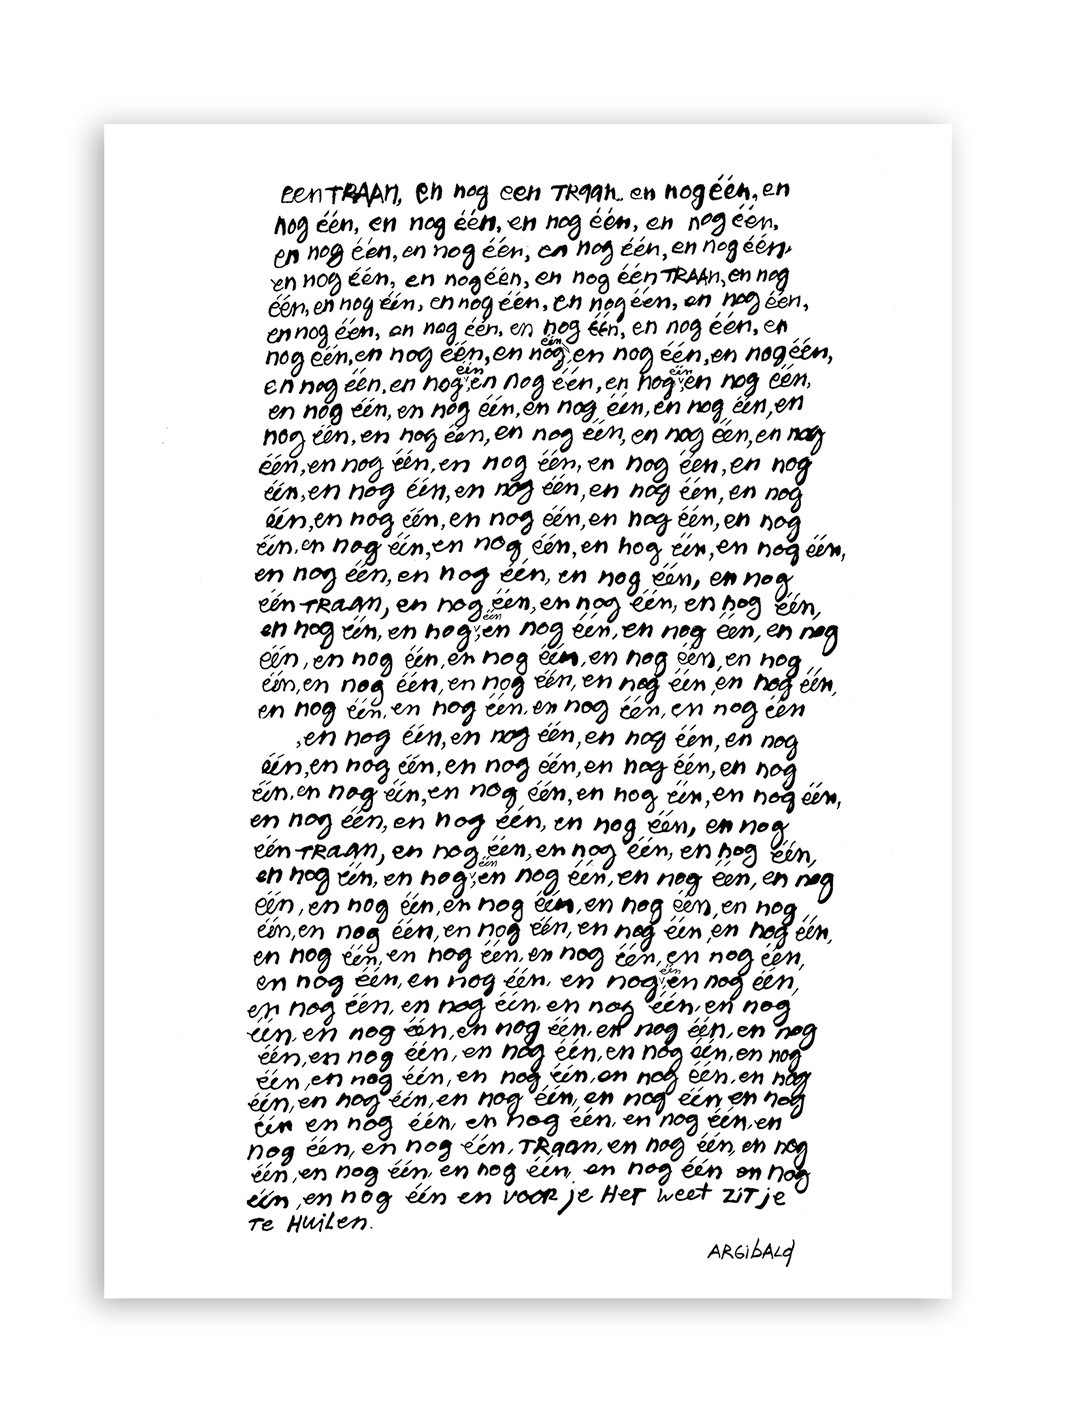 een TRAAN, en nog een TRaan.. en nog één, en
nog één, en nog één, en nog één, en nog één,
en nog één, en nog één, en nog één, en nog één,
en nog één, en nog één, en nog één TRAAN, en nog
één, en nog één, en nog één, en nog één, en nog één,
en nog één, en nog één, en nog één, en nog één, en
nog één, en nog één, en nog één, en nog één, en nog één,
en nog één, en nog één, en nog één, en nog één, en nog één,
en nog één, en nog één, en nog één, en nog één, en
nog één, en nog één, en nog één, en nog één, en nog
één, en nog één, en nog één, en nog één, en nog
één, en nog één, en nog één, en nog één, en nog
één, en nog één, en nog één, en nog één, en nog
één, en nog één, en nog één, en nog één, en nog één,
en nog één, en nog één, en nog één, en nog
één TRaan, en nog één, en nog één, en nog één,
en nog één, en nog één, en nog één, en nog één, en nog
één, en nog één, en nog één, en nog één, en nog
één, en nog één, en nog één, en nog één, en nog één,
en nog één, en nog één, en nog één, en nog één
, en nog één, en nog één, en nog één, en nog
één, en nog één, en nog één, en nog één, en nog
één, en nog één, en nog één, en nog één, en nog één,
en nog één, en nog één, en nog één, en nog
één TRaan, en nog één, en nog één, en nog één,
en nog één, en nog één, en nog één, en nog één, en nog
één, en nog één, en nog één, en nog één, en nog
één, en nog één, en nog één, en nog één, en nog één,
en nog één, en nog één, en nog één, en nog één,
en nog één, en nog één, en nog één, en nog één,
en nog één, en nog één, en nog één, en nog
één, en nog één, en nog één, en nog één, en nog
één, en nog één, en nog één, en nog één, en nog
één, en nog één, en nog één, en nog één, en nog
één, en nog één, en nog één, en nog één en nog
één en nog één, en nog één, en nog één, en
nog één, en nog één, TRaan, en nog één, en nog
één, en nog één, en nog één, en nog één en nog
één, en nog één en voor je Het weet ziT je
Te Huilen.
ARGibALd